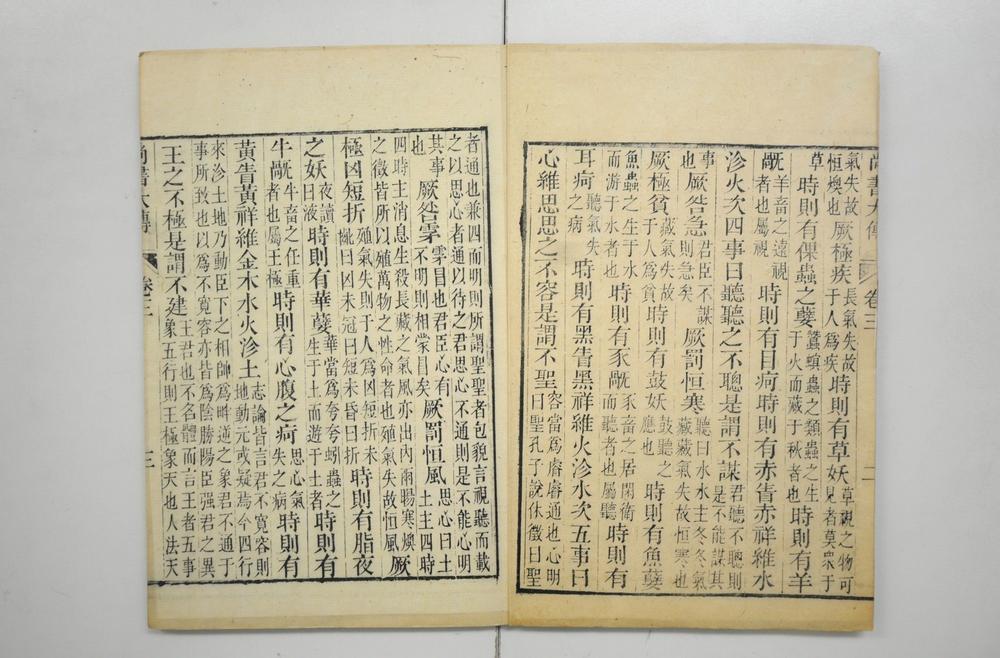 尚書大傳 卷三 二
氣失故恒燠也厥極疾長氣失故于人爲疾時則有草妖草視之物可見者莫衆于
草時則有倮蟲之孽蠶螟蟲之類蟲之生于火而藏于秋者也時則有羊
旤羊畜之遠視者也屬視時則有目痾時則有赤眚赤祥維水
沴火次四事曰聽聽之不聰是謂不謀君聽不聰則是不能謀其
事也厥咎急君臣不謀則急矣厥罰恒寒聽曰水水主冬冬氣藏藏氣失故恒寒也
厥極貧藏氣失故于人爲貧時則有鼓妖鼓聽之應也時則有魚孽
魚蟲之生于水而游于水者也時則有豕旤豕畜之居閑衛而聽者也屬聽時則有
耳痾聽氣失之病時則有黑眚黑祥維火沴水次五事曰
心維思思之不容是謂不聖容當爲睿睿通也心明曰聖孔子說休徵曰聖
者通也兼四而明則所謂聖聖者包貌言視聽而載之以思心者通以待之君思心不通則是不能心明
其事也厥咎雺雺冒也君臣心有不明則相蒙冒矣厥罰恒風思心曰土土主四時
四時主消息生殺長藏之氣風亦出內雨暘寒燠之徵皆所以殖萬物之性命者也殖氣失故恒風厥
極凶短折殖氣失則于人爲凶短折未齔曰凶未冠曰短未昏曰折時則有脂夜
之妖夜讀曰液時則有華孽華當爲夸夸蚓蟲之生于土而游于土者時則有
牛旤牛畜之任重者也屬王極時則有心腹之痾思心氣失之病時則有
黃眚黃祥維金木水火沴土志論皆言君不寬容則地動元或疑焉今四行
來沴土地乃動臣下之相帥爲畔逆之象君不通于事所致也以爲不寬容亦皆爲陰勝陽臣强君之異
王之不極是謂不建王君也不名體而言王者五事象五行則王極象天也人法天
尚書大傳 卷三 三